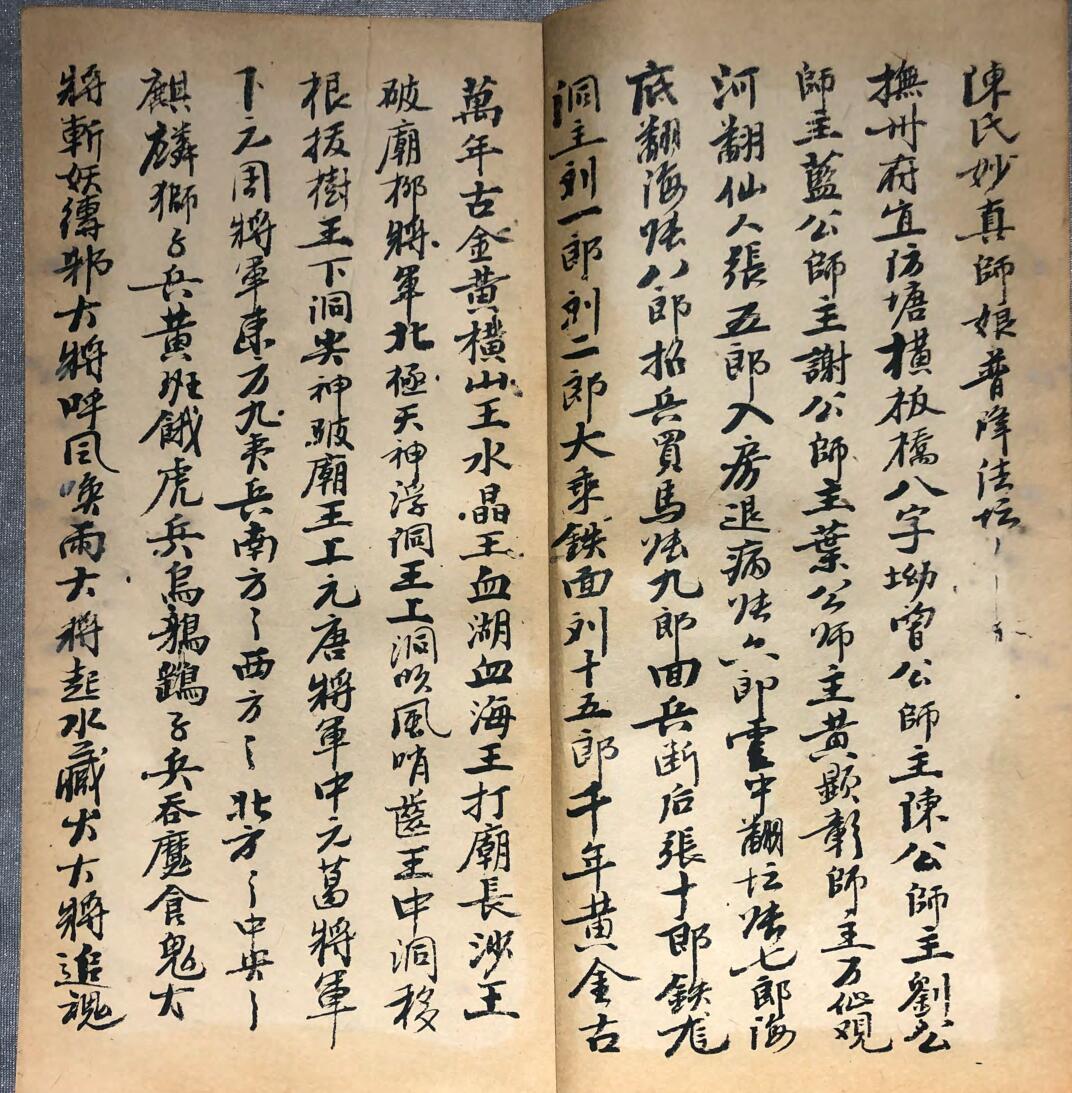 陳氏妙真師娘普降法坛
撫卅府宜防塘橫板橋八字坳曾公師主陳公師主劉公
師主藍公師主謝公師主葉公师主黄顕彰師主万仙观
河翻仙人張五郎入房退病张六郎雲中翻坛张七郎海
底翻海张八郎招兵買馬张九郎回兵断后張十郎鉄尨
洞主列一郎列二郎大乘鉄面列十五郎千年黄金古
萬年古金黄橫山王水晶王血湖血海王打廟長沙王
破廟柳將軍北極天神浮洞王上洞吹風哨蓝王中洞移
根拔樹王下洞尖神破廟王上元唐將軍中元葛將軍
下元周將軍东方九夷兵南方〻西方〻北方〻中央〻
麒麟獅子兵黄班餓虎兵烏鵶鷂子兵吞魔食鬼大
將斬妖縛邪大將呼風喚雨大將起水藏火大將追魂